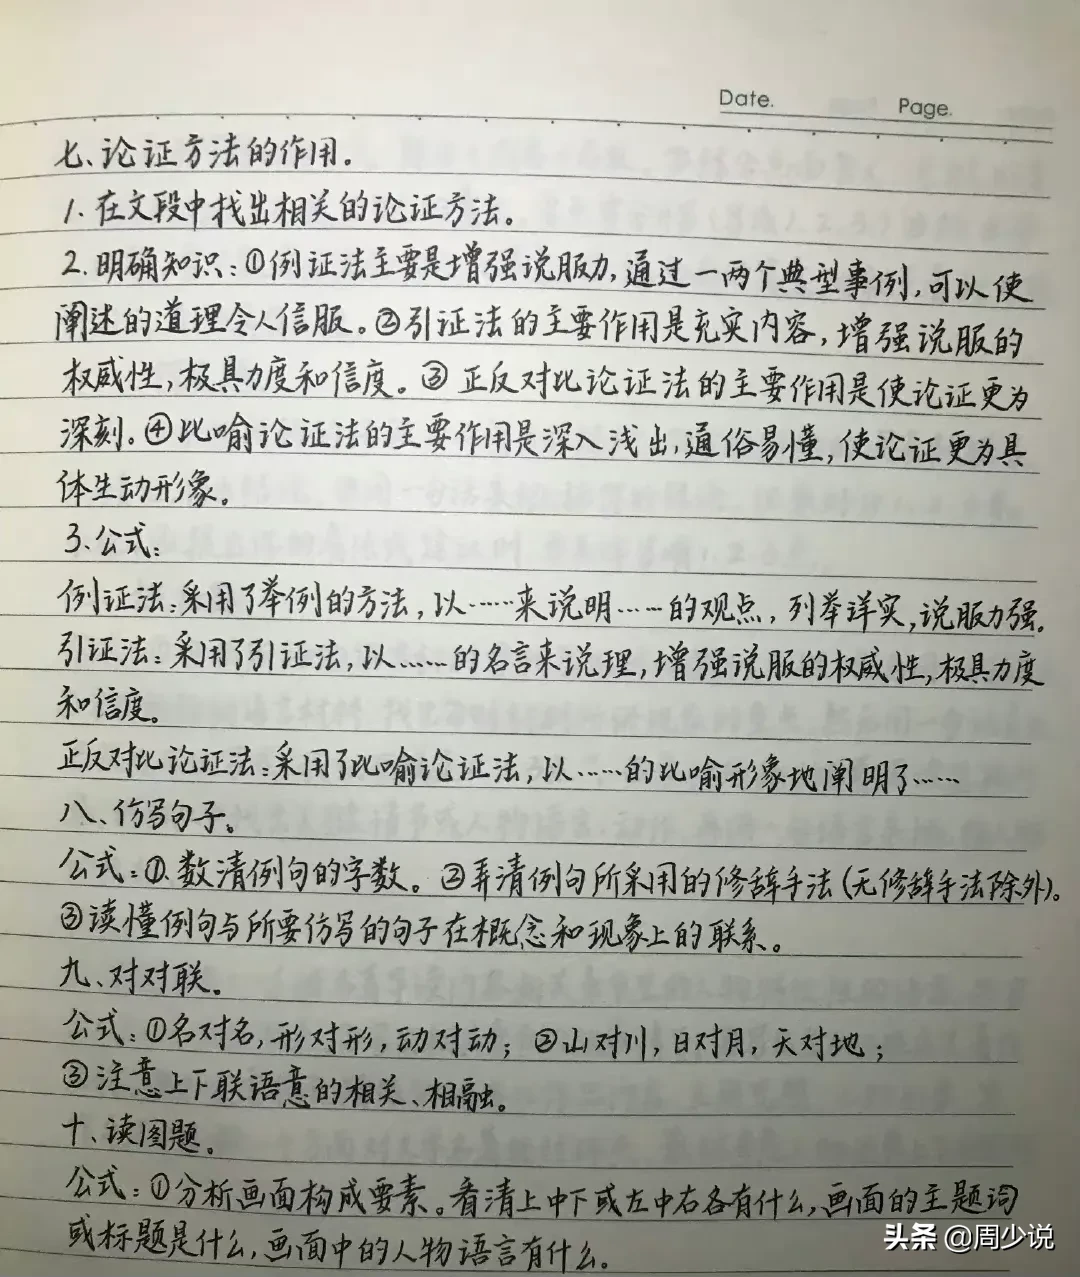 Date.
Page.
七、论证方法的作用.
1.在文段中找出相关的论证方法。
2.明确知识:①例证法主要是增强说服力,通过一两个典型事例,可以使
阐述的道理令人信服。②引证法的主要作用是充实内容,增强说服的
权威性,极具力度和信度。③正反对比论证法的主要作用是使论证更为
深刻。④比喻论证法的主要作用是深入浅出,通俗易懂,使论证更为具
体生动形象。
3.公式:
例证法:采用了举例的方法,以……来说明……的观点,列举详实,说服力强.
引证法:采用了引证法,以……的名言来说理,增强说服的权威性,极具力度
和信度。
正反对比论证法:采用了比喻论证法,以……的比喻形象地阐明了……
八、仿写句子。
公式:①.数清例句的字数。②弄清例句所采用的修辞手法(无修辞手法除外)。
③读懂例句与所要仿写的句子在概念和现象上的联系。
九、对对联.
公式:①名对名,形对形,动对动;②山对川,日对月,天对地;
③注意上下联语意的相关、相融。
十、读图题。
公式:①分析画面构成要素。看清上中下或左中右各有什么,画面的主题词
或标题是什么,画面中的人物语言有什么。
头条 @周少说